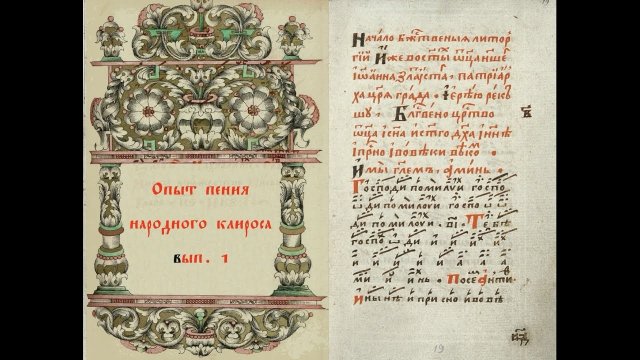 Опыт пения
народного клироса
вып. 1
Начало бж҃ственыѧ литор
гїи Иже во ст҃ы ѿц҃а нш҃е
іѡанна патрїар
ха цр҃ѧ града . Іерѣю рекъ
шꙋ . Бл҃гвено црⷭ҇тво
ѿц҃а и сн҃а и ст҃го дх҃а и нн҃ѣ
и прⷭ҇но и во вѣки вѣкѡⷨ .
И мы гл҃емъ . аминь .
Господи помилоуи госпо
ди помилоуи госпо
ди помилоуи . в҃і . Тебѣ
госпо ди и и и и
и и и и а а
ми и инь . По се анти
И ны нѣ и присно и во вѣ
19